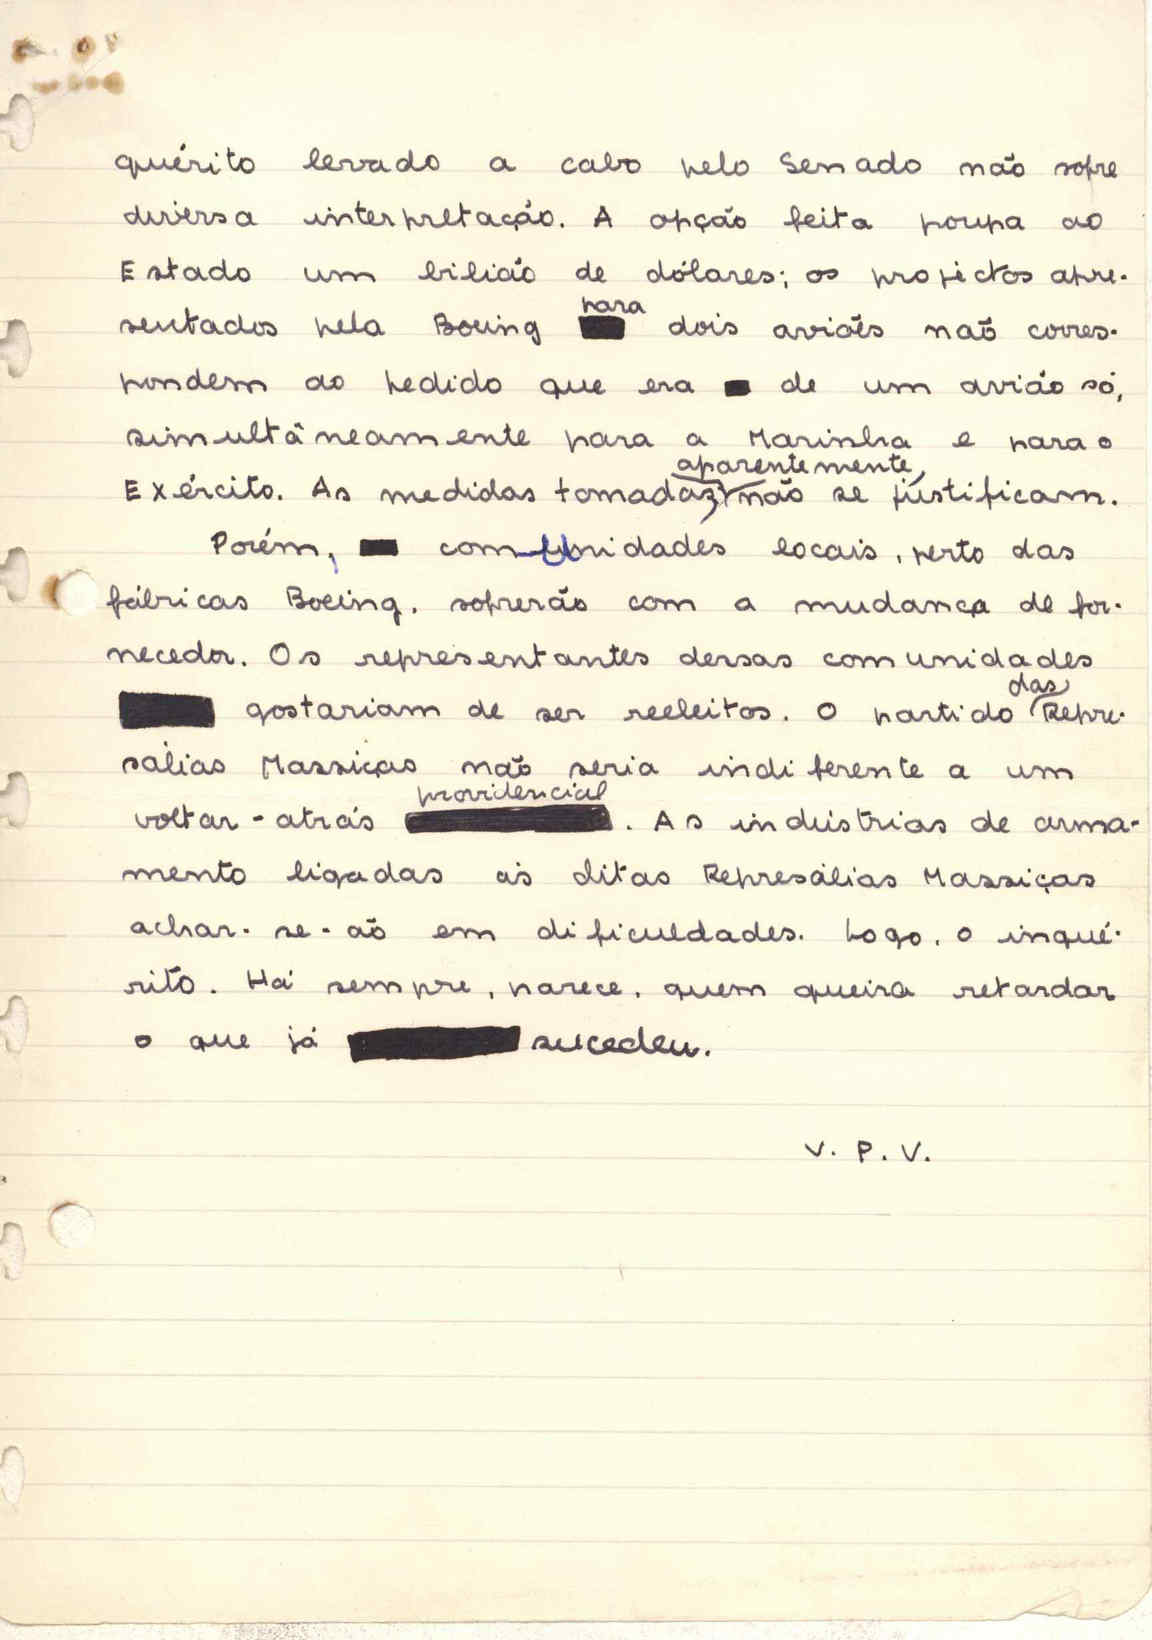 quérito levado a cabo pelo Senado não sofre
diversa interpretação. A opção feita poupa ao
Estado um bilião de dólares; os projectos apre-
sentados pela Boeing para dois aviões não corres-
pondem ao pedido que era de um avião só,
simultâneamente para a Marinha e para o
Exército. As medidas tomadas, aparentemente, não se justificam.
Porém, comunidades locais, perto das
fábricas Boeing, sofrerão com a mudança de for-
necedor. Os representantes dessas comunidades
gostariam de ser reeleitos. O partido das Repre-
sálias Massiças não seria indiferente a um
voltar-atrás providencial. As indústrias de arma-
mento ligadas às ditas Represálias Massiças
achar-se-ão em dificuldades. Logo, o inqué-
rito. Há sempre, parece, quem queira retardar
o que já sucedeu.
V. P. V.